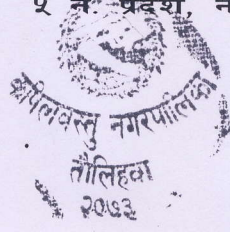 ५ नं. प्रदेश, न
कपिलवस्तु नगरपालिका
तौलिहवा
२०७३